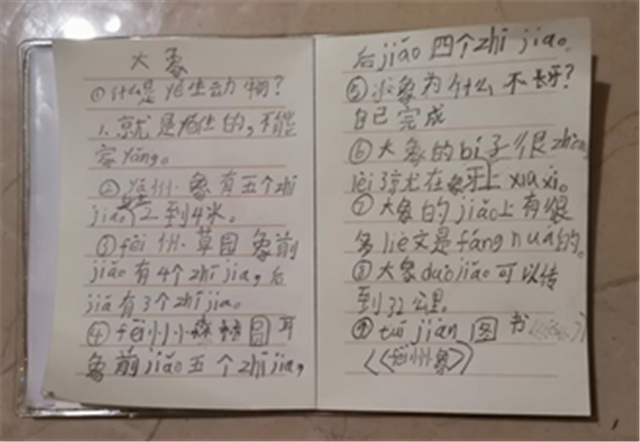 大象
①什么是 危生动物？
1.就是危生的，不能
家yǎng。
②yà州·象有五个zhǐ
jiao 2到4米。
③fēi州·草园象前
jiǎo有4个zhǐ jia，后
jiǎ有3个zhǐ jia。
④fēi州小森林圆耳
象前jiǎo五个zhǐ jia，
后jiǎo四个zhǐ jiao。
⑤ 象为什么不长牙？
自己完成
⑥大象的bí子很zhòng
lèi了就在象牙上xiū xi。
⑦大象的jiǎo上有很
多liè文是fáng huá的。
⑧大象duò jiǎo可以传
到32公里。
⑨tuī jiàn图书
《《fēi州象》